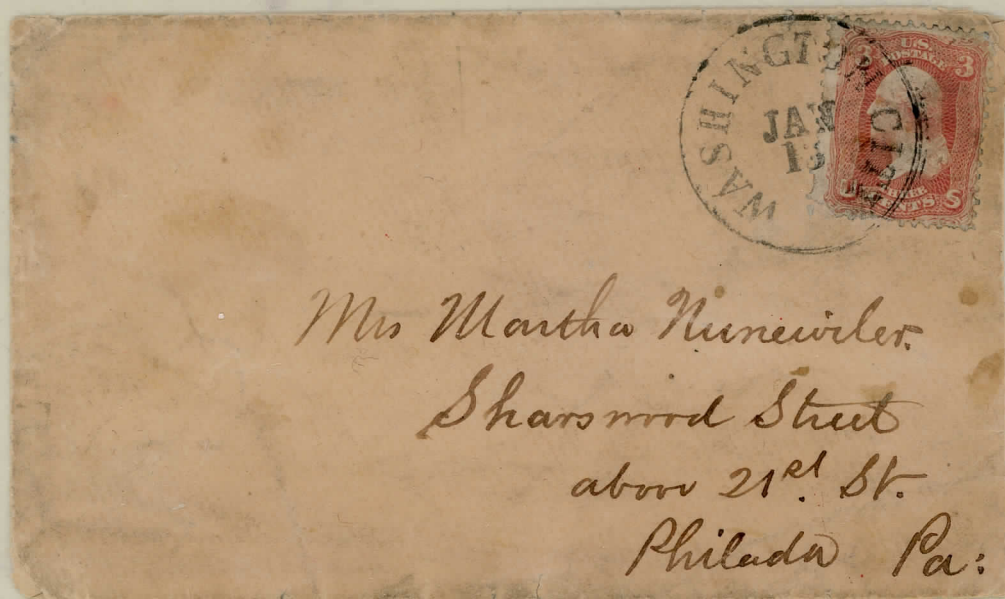 WASHINGTON CITY
JAN
13
3 U.S. 3
POSTAGE
U THREE S
CENTS
Mrs Martha Nunewiler.
Sharswood Street
above 21st. St.
Philada Pa: